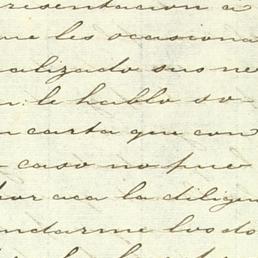 resentacion a
me les ocasiona
alizado sus ne
n: le hablo so-
n carta que con
caso no pue
por aca la dilige
ndarme los do